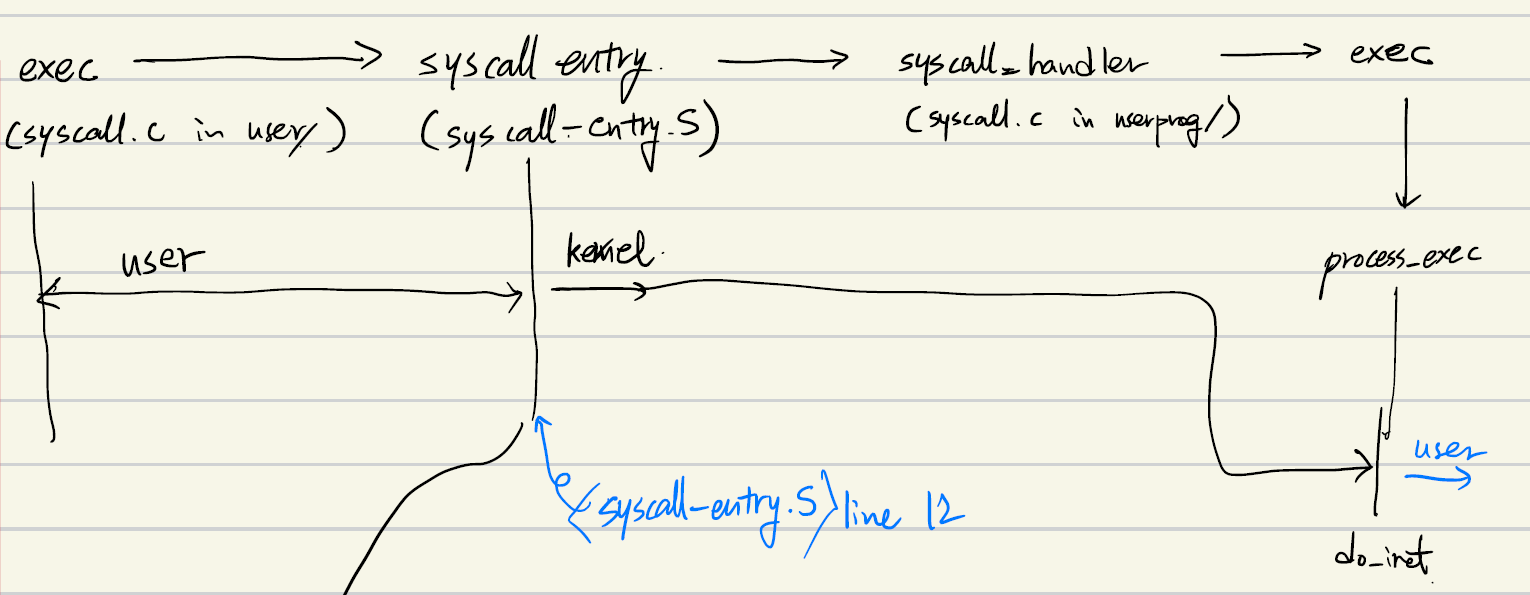 exec → syscall entry. → syscall_handler → exec
(syscall.c in user/) (syscall-entry.S) (syscall.c in userprog/)
user kernel.
process_exec
user
(syscall-entry.S) line 12
do_iret